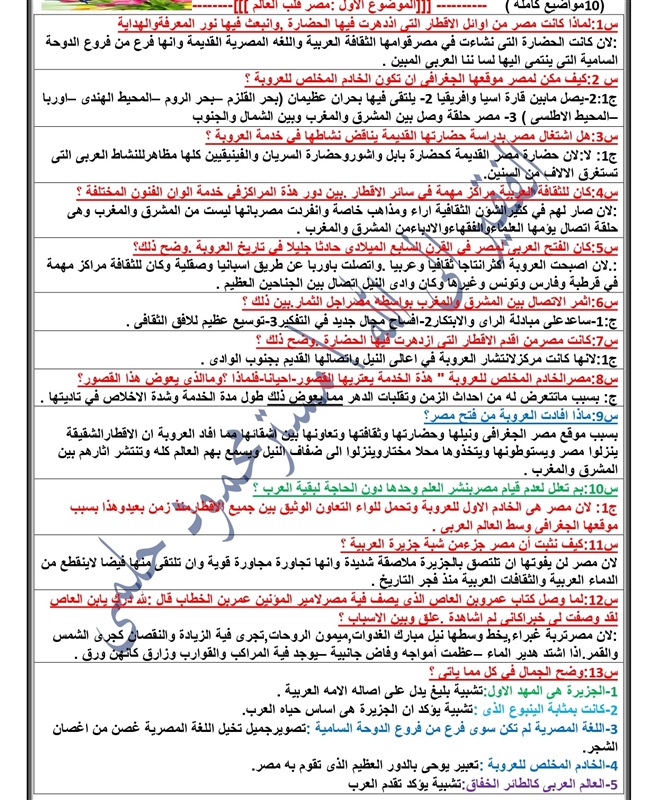 (10مواضيع كاملة ) ---------- [[[الموضوع الاول :مصر قلب العالم ]]]--------
س1:لماذا كانت مصر من اوائل الاقطار التى اذدهرت فيها الحضارة ,وانبعث فيها نور المعرفةوالهداية
:لان كانت الحضارة التى نشاءت في مصرقوامها الثقافة العربية واللغه المصرية القديمة وانها فرع من فروع الدوحة
السامية التى ينتمى اليها لسا ننا العربى المبين .
س 2:كيف مكن لمصر موقعها الجغرافى ان تكون الخادم المخلص للعروبة ؟
ج2:1-يصل مابين قارة اسيا وافريقيا 2- يلتقى فيها بحران عظيمان (بحر القلزم –بحر الروم –المحيط الهندى –اوربا
–المحيط الاطلسى ) 3- مصر حلقة وصل بين المشرق والمغرب وبين الشمال والجنوب
س3:هل اشتغال مصر بدراسة حضارتها القديمة يناقض نشاطها في خدمة العروبة ؟
ج1: لا:لان حضارة مصر القديمة كحضارة بابل واشوروحضارة السريان والفينيقيين كلها مظاهرللنشاط العربى التى
تستغرق الالاف من السنين.
س4:كان للثقافة العربية مراكز مهمة في سائر الاقطار .بين دور هذة المراكزفي خدمة الوان الفنون المختلفة ؟
:لان صار لهم في كثيرالشؤن الثقافية اراء ومذاهب خاصة وانفردت مصربانها ليست من المشرق والمغرب وهى
حلقة اتصال يؤمها العلماءوالفقهاءوالادباءمن المشرق والمغرب .
س5:كان الفتح العربى لمصر في القرن السابع الميلادى حادثا جليلا في تاريخ العروبة .وضح ذلك؟
:.لان اصبحت العروبة اكثرانتاجا ثقافيا وعربيا .واتصلت باوربا عن طريق اسبانيا وصقلية وكان للثقافة مراكز مهمة
في قرطبة وفارس وتونس وغيرها وكان وادى النيل اتصال بين الجناحين العظيم .
س6:اثمر الاتصال بين المشرق والمغرب بواسطه مصراجل الثمار.بين ذلك ؟
ج:1-ساعدعلى مبادلة الراى والابتكار2-افساح مجال جديد في التفكير3-توسيع عظيم للافق الثقافى .
س7:كانت مصرمن اقدم الاقطار التى ازدهرت فيها الحضارة .وضح ذلك ؟
ج1:لانها كانت مركزلانتشار العروبة في اعالى النيل واتصالها القديم بجنوب الوادى .
س8:مصرالخادم المخلص للعروبة " هذة الخدمة يعتريها القصور-احيانا-فلماذا ؟وماالذى يعوض هذا القصور؟
ج: بسبب ماتتعرض له من احداث الزمن وتقلبات الدهر مما يعوض ذلك طول مدة الخدمة وشدة الاخلاص في تاديتها .
س9:ماذا افادت العروبة من فتح مصر؟
بسبب موقع مصر الجغرافى ونيلها وحضارتها وثقافتها وتعاونها بين اشقائها مما افاد العروبة ان الاقطارالشقيقة
ينزلوا مصر ويستوطونها ويتخذوها محلا مختاروينزلوا الى ضفاف النيل ويسمع بهم العالم كله وتنتشر اثارهم بين
المشرق والمغرب .
س10:بم تعلل لعدم قيام مصربنشر العلم وحدها دون الحاجة لبقية العرب ؟
ج1: لان مصر هى الخادم الاول للعروبة وتحمل للواء التعاون الوثيق بين جميع الاقطارمنذ زمن بعيدوهذا بسبب
موقعها الجغرافى وسط العالم العربى .
س11:كيف نثبت أن مصر جزءمن شبة جزيرة العربية ؟
لان مصر لن يفوتها ان تلتصق بالجزيرة ملاصقة شديدة وانها تجاورة مجاورة قوية وان تتلقى منها فيضا لاينقطع من
الدماء العربية والثقافات العربية منذ فجر التاريخ .
س12:لما وصل كتاب عمروبن العاص الذى يصف فية مصرلامير المؤنين عمربن الخطاب قال :لله درك يابن العاص
لقد وصفت لى خبراكانى لم اشاهدة .علق وبين الاسباب ؟
:لان مصرتربة غبراء,يخط وسطها نيل مبارك الغدوات,ميمون الروحات,تجرى فية الزيادة والنقصان كجرى الشمس
والقمر.اذا اشتد هدير الماء –عظمت أمواجه وفاض جانبية –يوجد فية المراكب والقوارب وزارق كانهن ورق .
س13:وضح الجمال في كل مما ياتى ؟
1-الجزيرة هى المهد الاول:تشبية بليغ يدل على اصاله الامه العربية .
2-كانت بمثابة الينبوع الذى :تشبية يؤكد ان الجزيرة هى اساس حياه العرب.
3-اللغة المصرية لم تكن سوى فرع من فروع الدوحة السامية :تصويرجميل تخيل اللغة المصرية غصن من اغصان
الشجر.
4-الخادم المخلص للعروبة :تعبير يوحى بالدور العظيم الذى تقوم به مصر.
5-العالم العربى كالطائر الخفاق:تشبية يؤكد تقدم العرب